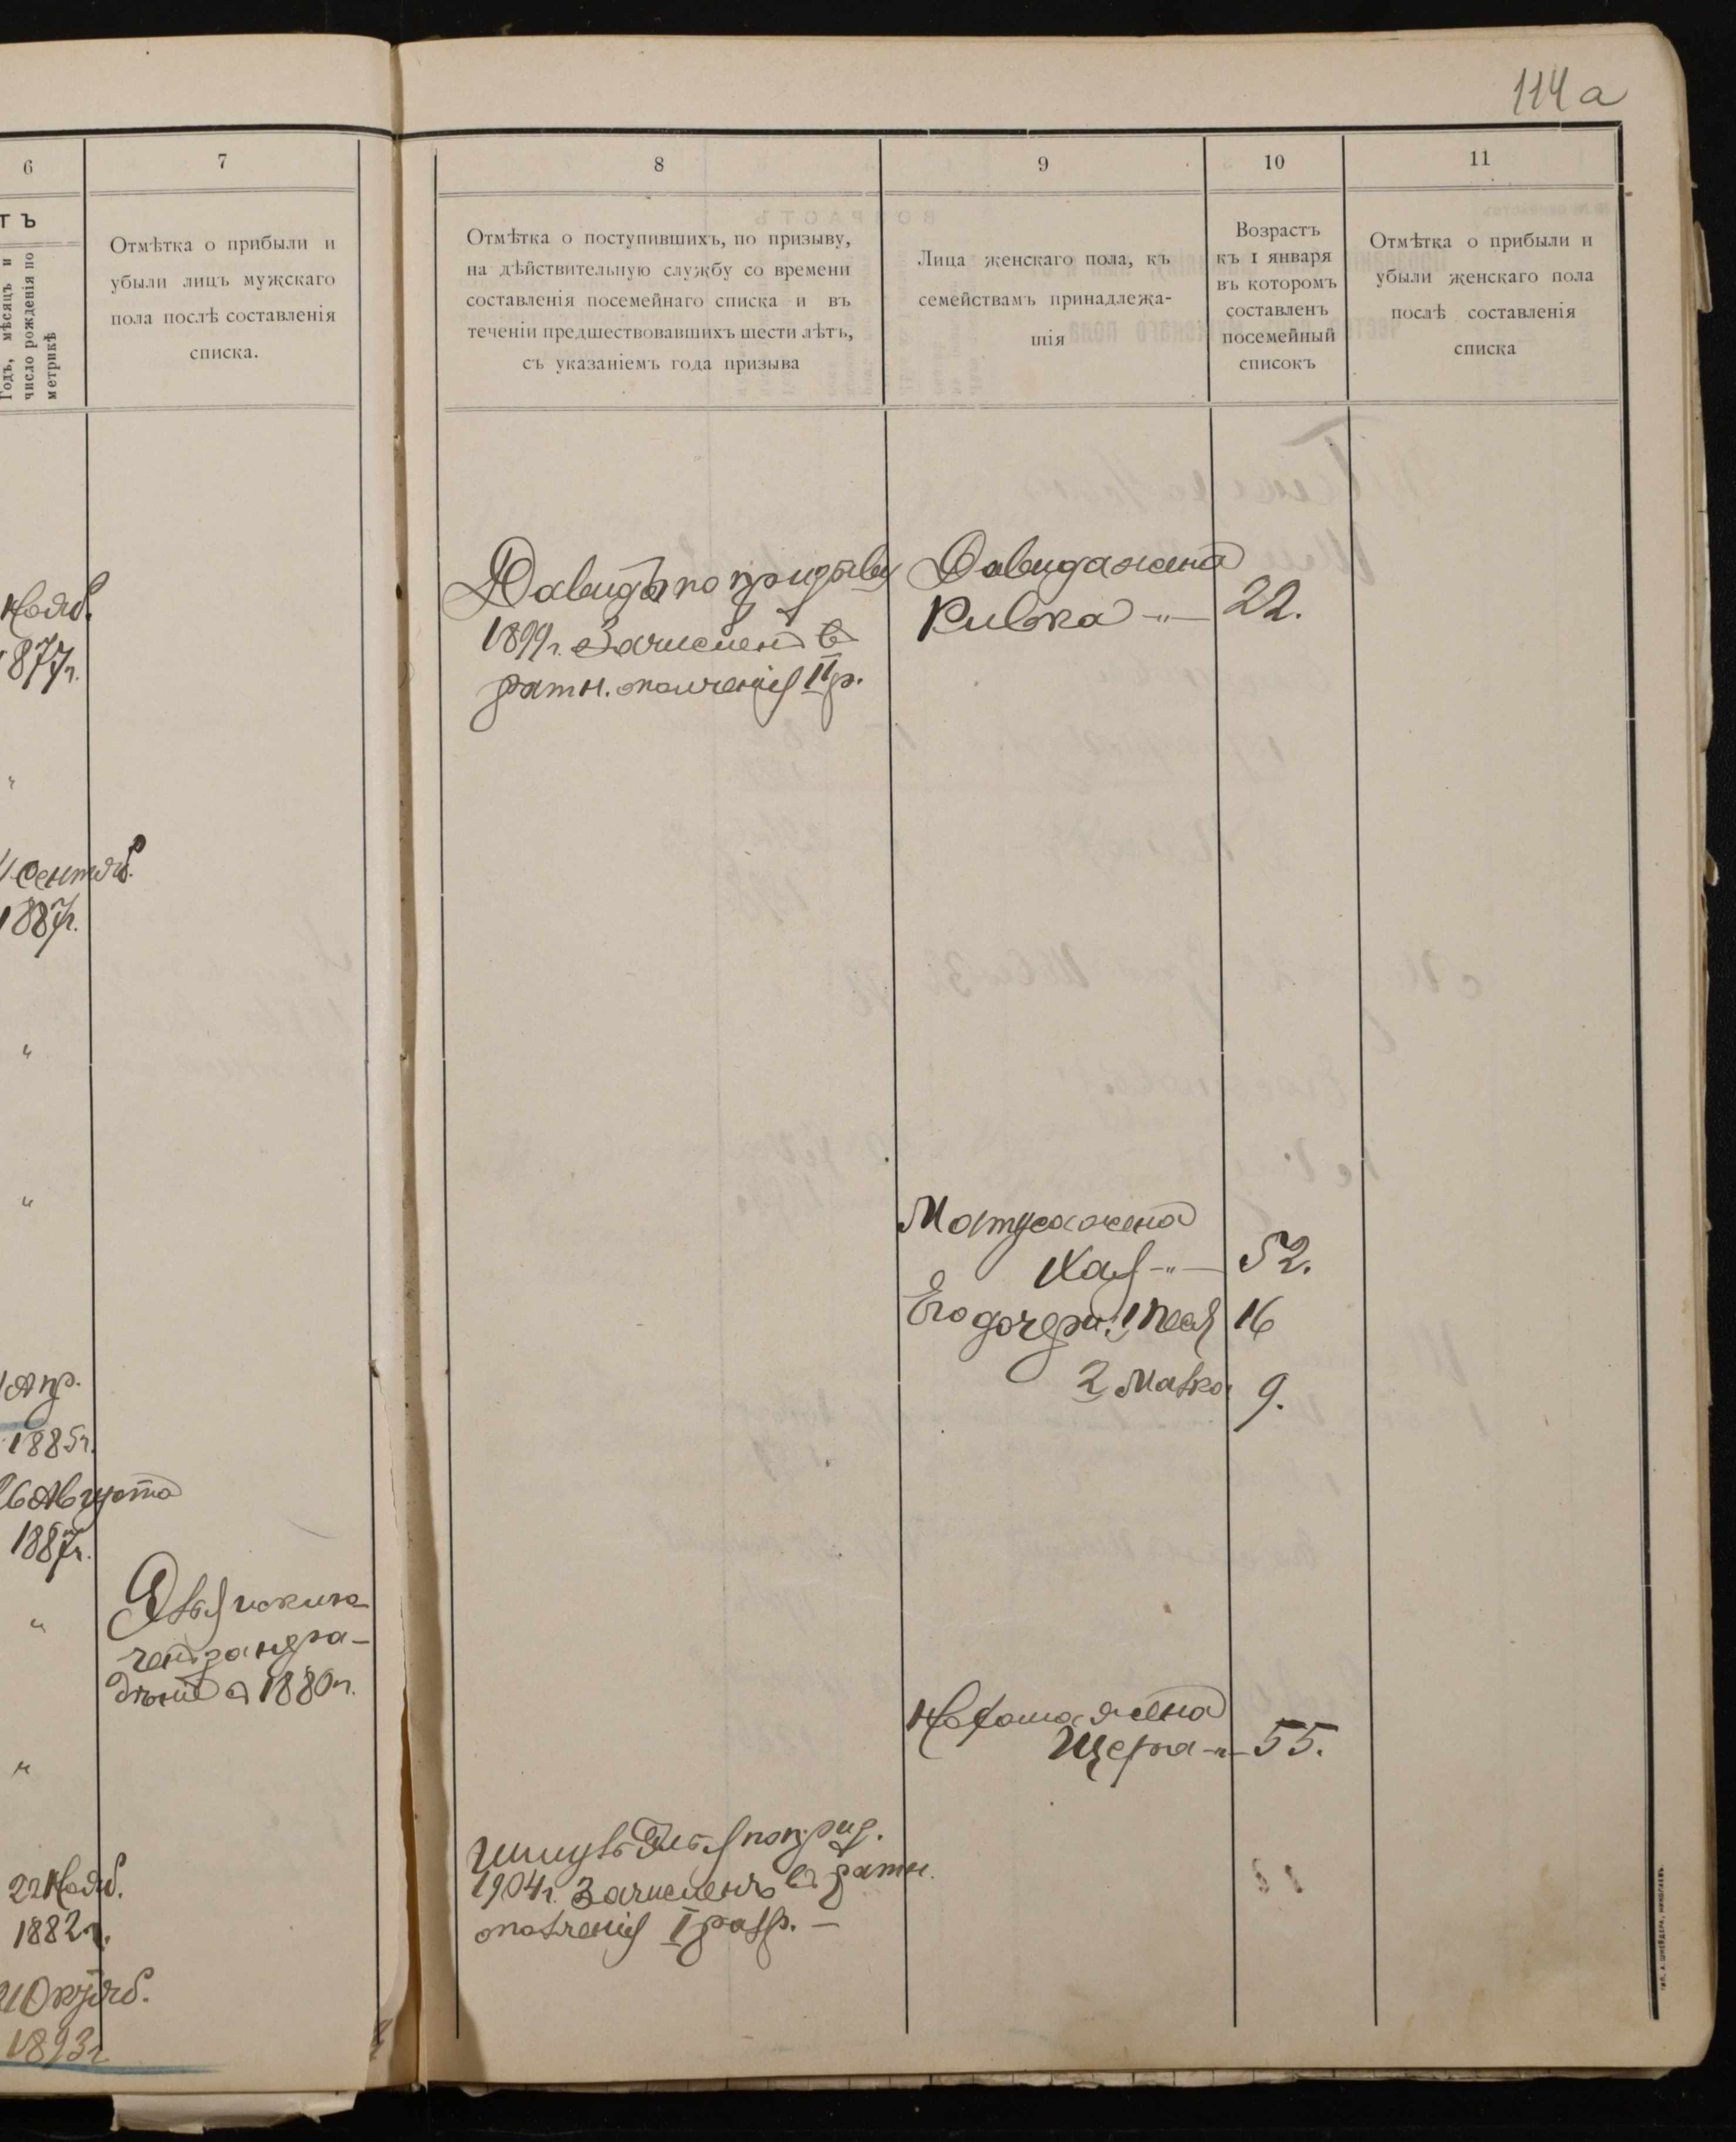 114 а
6
7
8
9
10
11
ТЪ
Годъ, мѣсяцъ и
число рожденія по
метрикѣ
Отмѣтка о прибыли и
убыли лицъ мужскаго
пола послѣ составленія
списка.
Отмѣтка о поступившихъ, по призыву,
на дѣйствительную службу со времени
составленія посемейнаго списка и въ
теченіи предшествовавшихъ шести лѣтъ,
съ указаніемъ года призыва
Лица женскаго пола, къ
семействамъ принадлежа-
шія
Возрастъ
къ 1 января
въ которомъ
составленъ
посемейный
списокъ
Отмѣтка о прибыли и
убыли женскаго пола
послѣ составленія
списка
Нояб.
1877г.
"
Сентяб.
1887г.
"
"
Апр.
1885г.
26 Августа
1887г.
"
"
22 Нояб.
1882г.
21 Октяб.
1893г
1880г.
Давидъ по призыву
1899г. Зачисленъ въ
ратн. ополченія II р.
по приз.
1904г. Зачисленъ въ ратн.
ополченія I разр. —
Давида жена
Ривка -"- 22.
Матуса жена
Хая -"- 52.
Его дочери: 1 Песя 16
2 Малка 9.
жена
-"- 55.